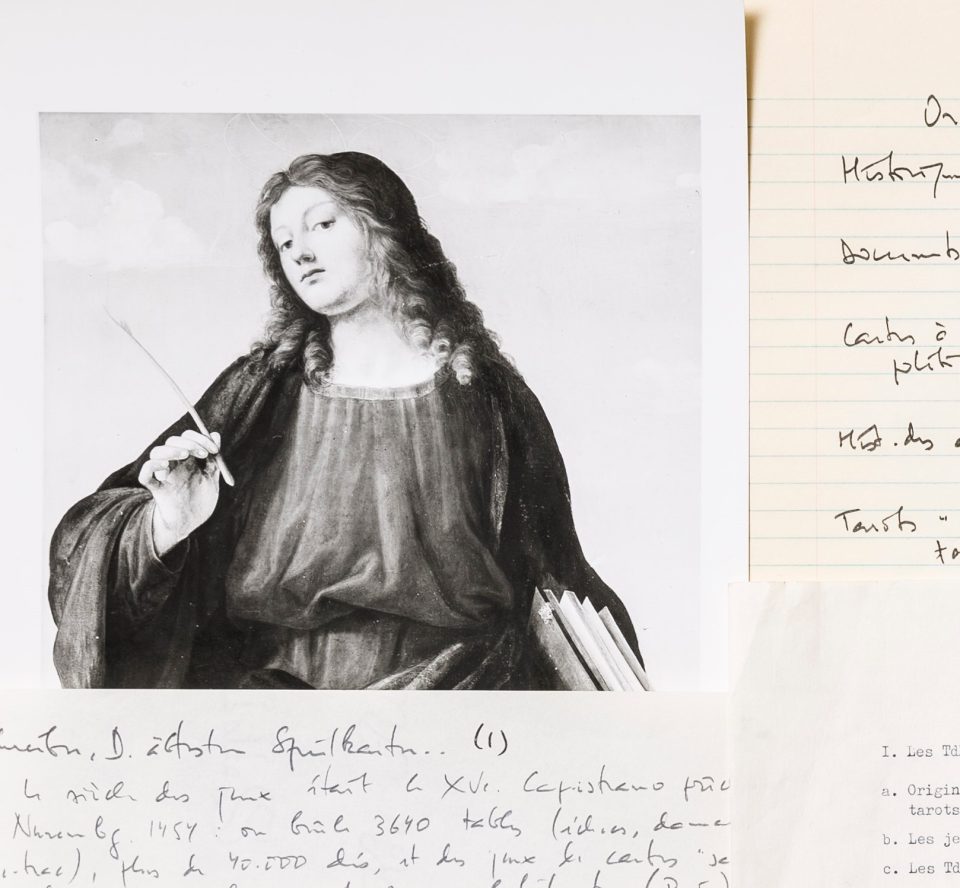 On
Historiqu
Documents
Cartes à
polit
Hist. des
Tarots "
D. ältesten Spielkarten.. (1)
le siècle des jeux était le XVe. Capistrano prêc
Nuremberg. 1454 : on brûle 3640 tables (échecs, dame
tric-trac), plus de 40.000 dés, et des jeux de cartes "se
I. Les Td
a. Origin
tarots
b. Les je
c. Les Td